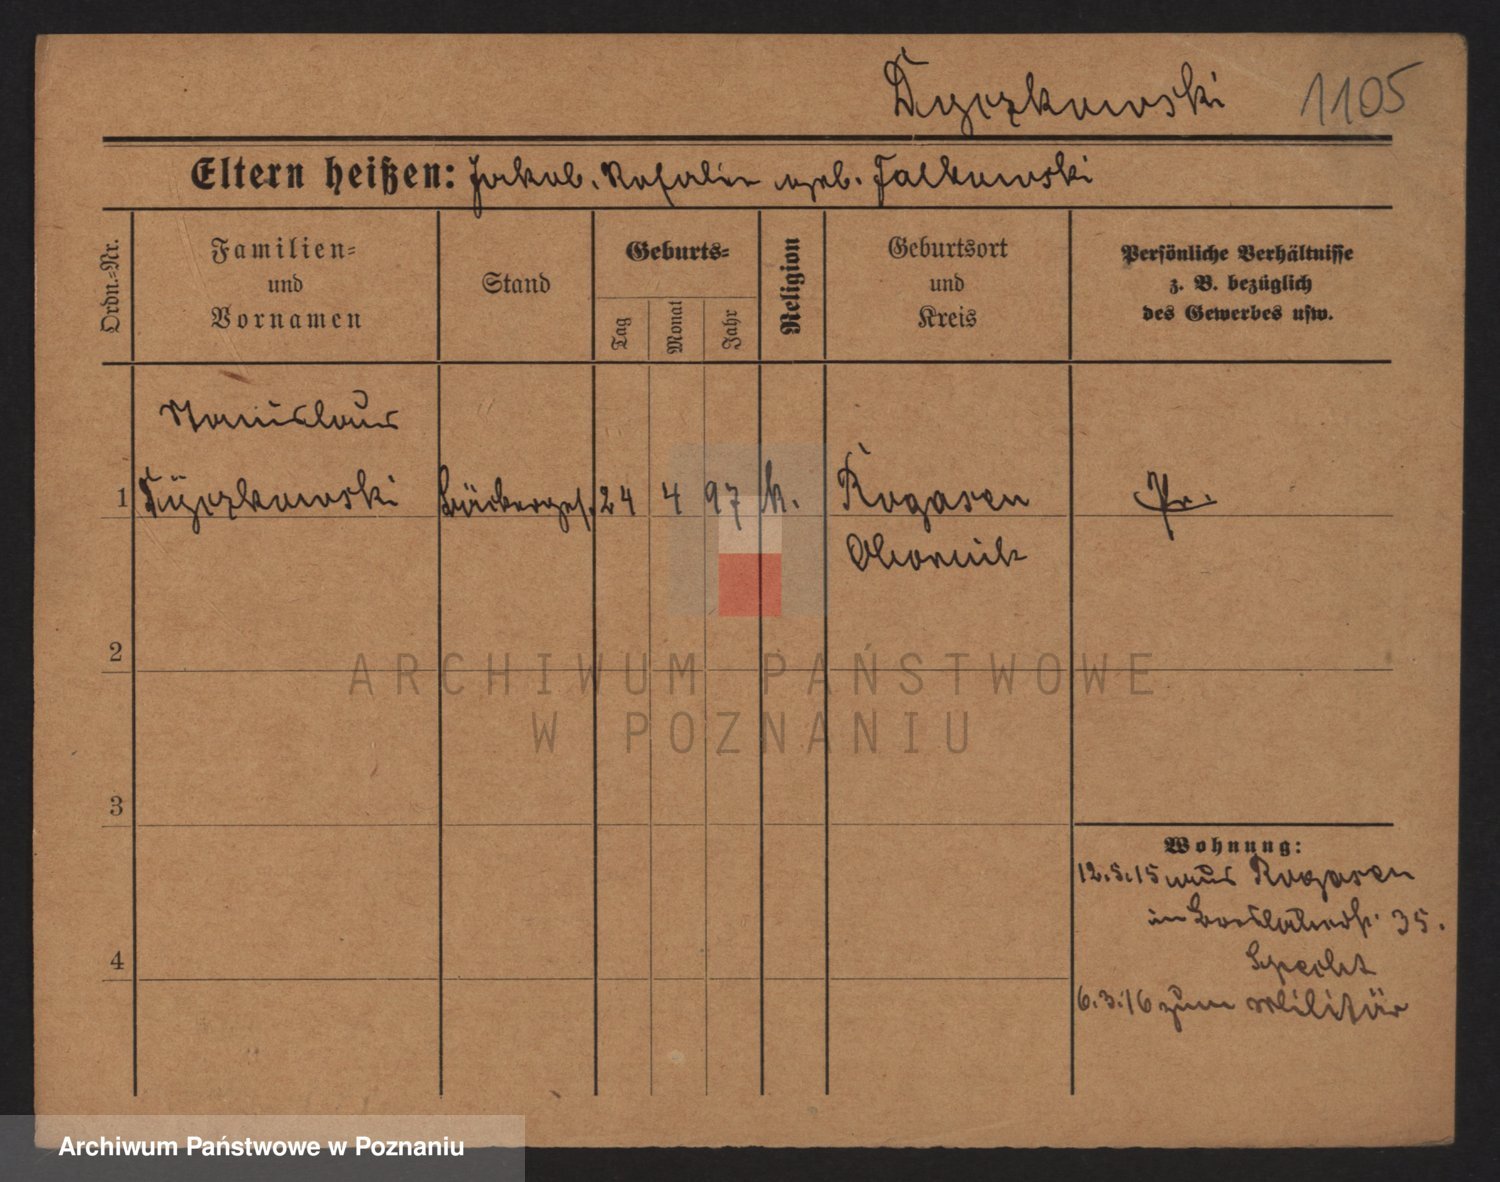 Dyczkowski 1105
Eltern heißen: Jakob. Rosalie geb. Falkowski
Ordn.=Nr.
Familien=
und
Vornamen
Stand
Geburts=
Tag
Monat
Jahr
Religion
Geburtsort
und
Kreis
Persönliche Verhältnisse
z. B. bezüglich
des Gewerbes usw.
Stanislaus
1 Dyczkowski Bäckerges. 24 4 97 k. Rogasen Pr.
Obornik
2
3
4
Wohnung:
12.5.15 aus Rogasen
35.
Specht
6.3.16 zum Militär
ARCHIWUM PAŃSTWOWE
W POZNANIU
Archiwum Państwowe w Poznaniu